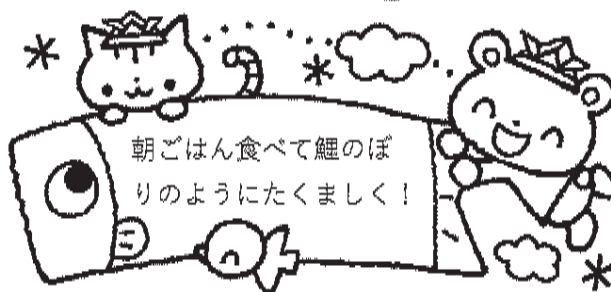 朝ごはん食べて鯉のぼ
りのようにたくましく！